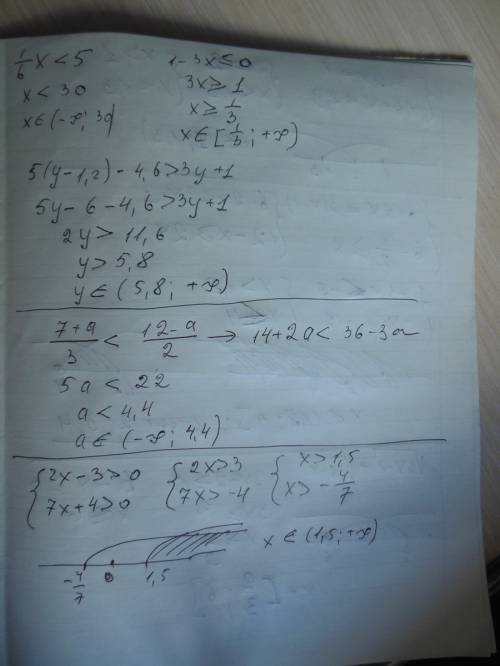 1/6 x < 5
x < 30
x ∈ (-∞; 30)
1 - 3x ≤ 0
3x ≥ 1
x ≥ 1/3
x ∈ [1/3; +∞)
5(y-1,2) - 4,6 > 3y+1
5y - 6 - 4,6 > 3y+1
2y > 11,6
y > 5,8
y ∈ (5,8; +∞)
(7+a)/3 < (12-a)/2 → 14+2a < 36-3a
5a < 22
a < 4,4
a ∈ (-∞; 4,4)
{2x-3>0 {2x>3 {x>1,5
{7x+4>0 {7x>-4 {x>-4/7
x ∈ (1,5; +∞)
-4/7 0 1,5